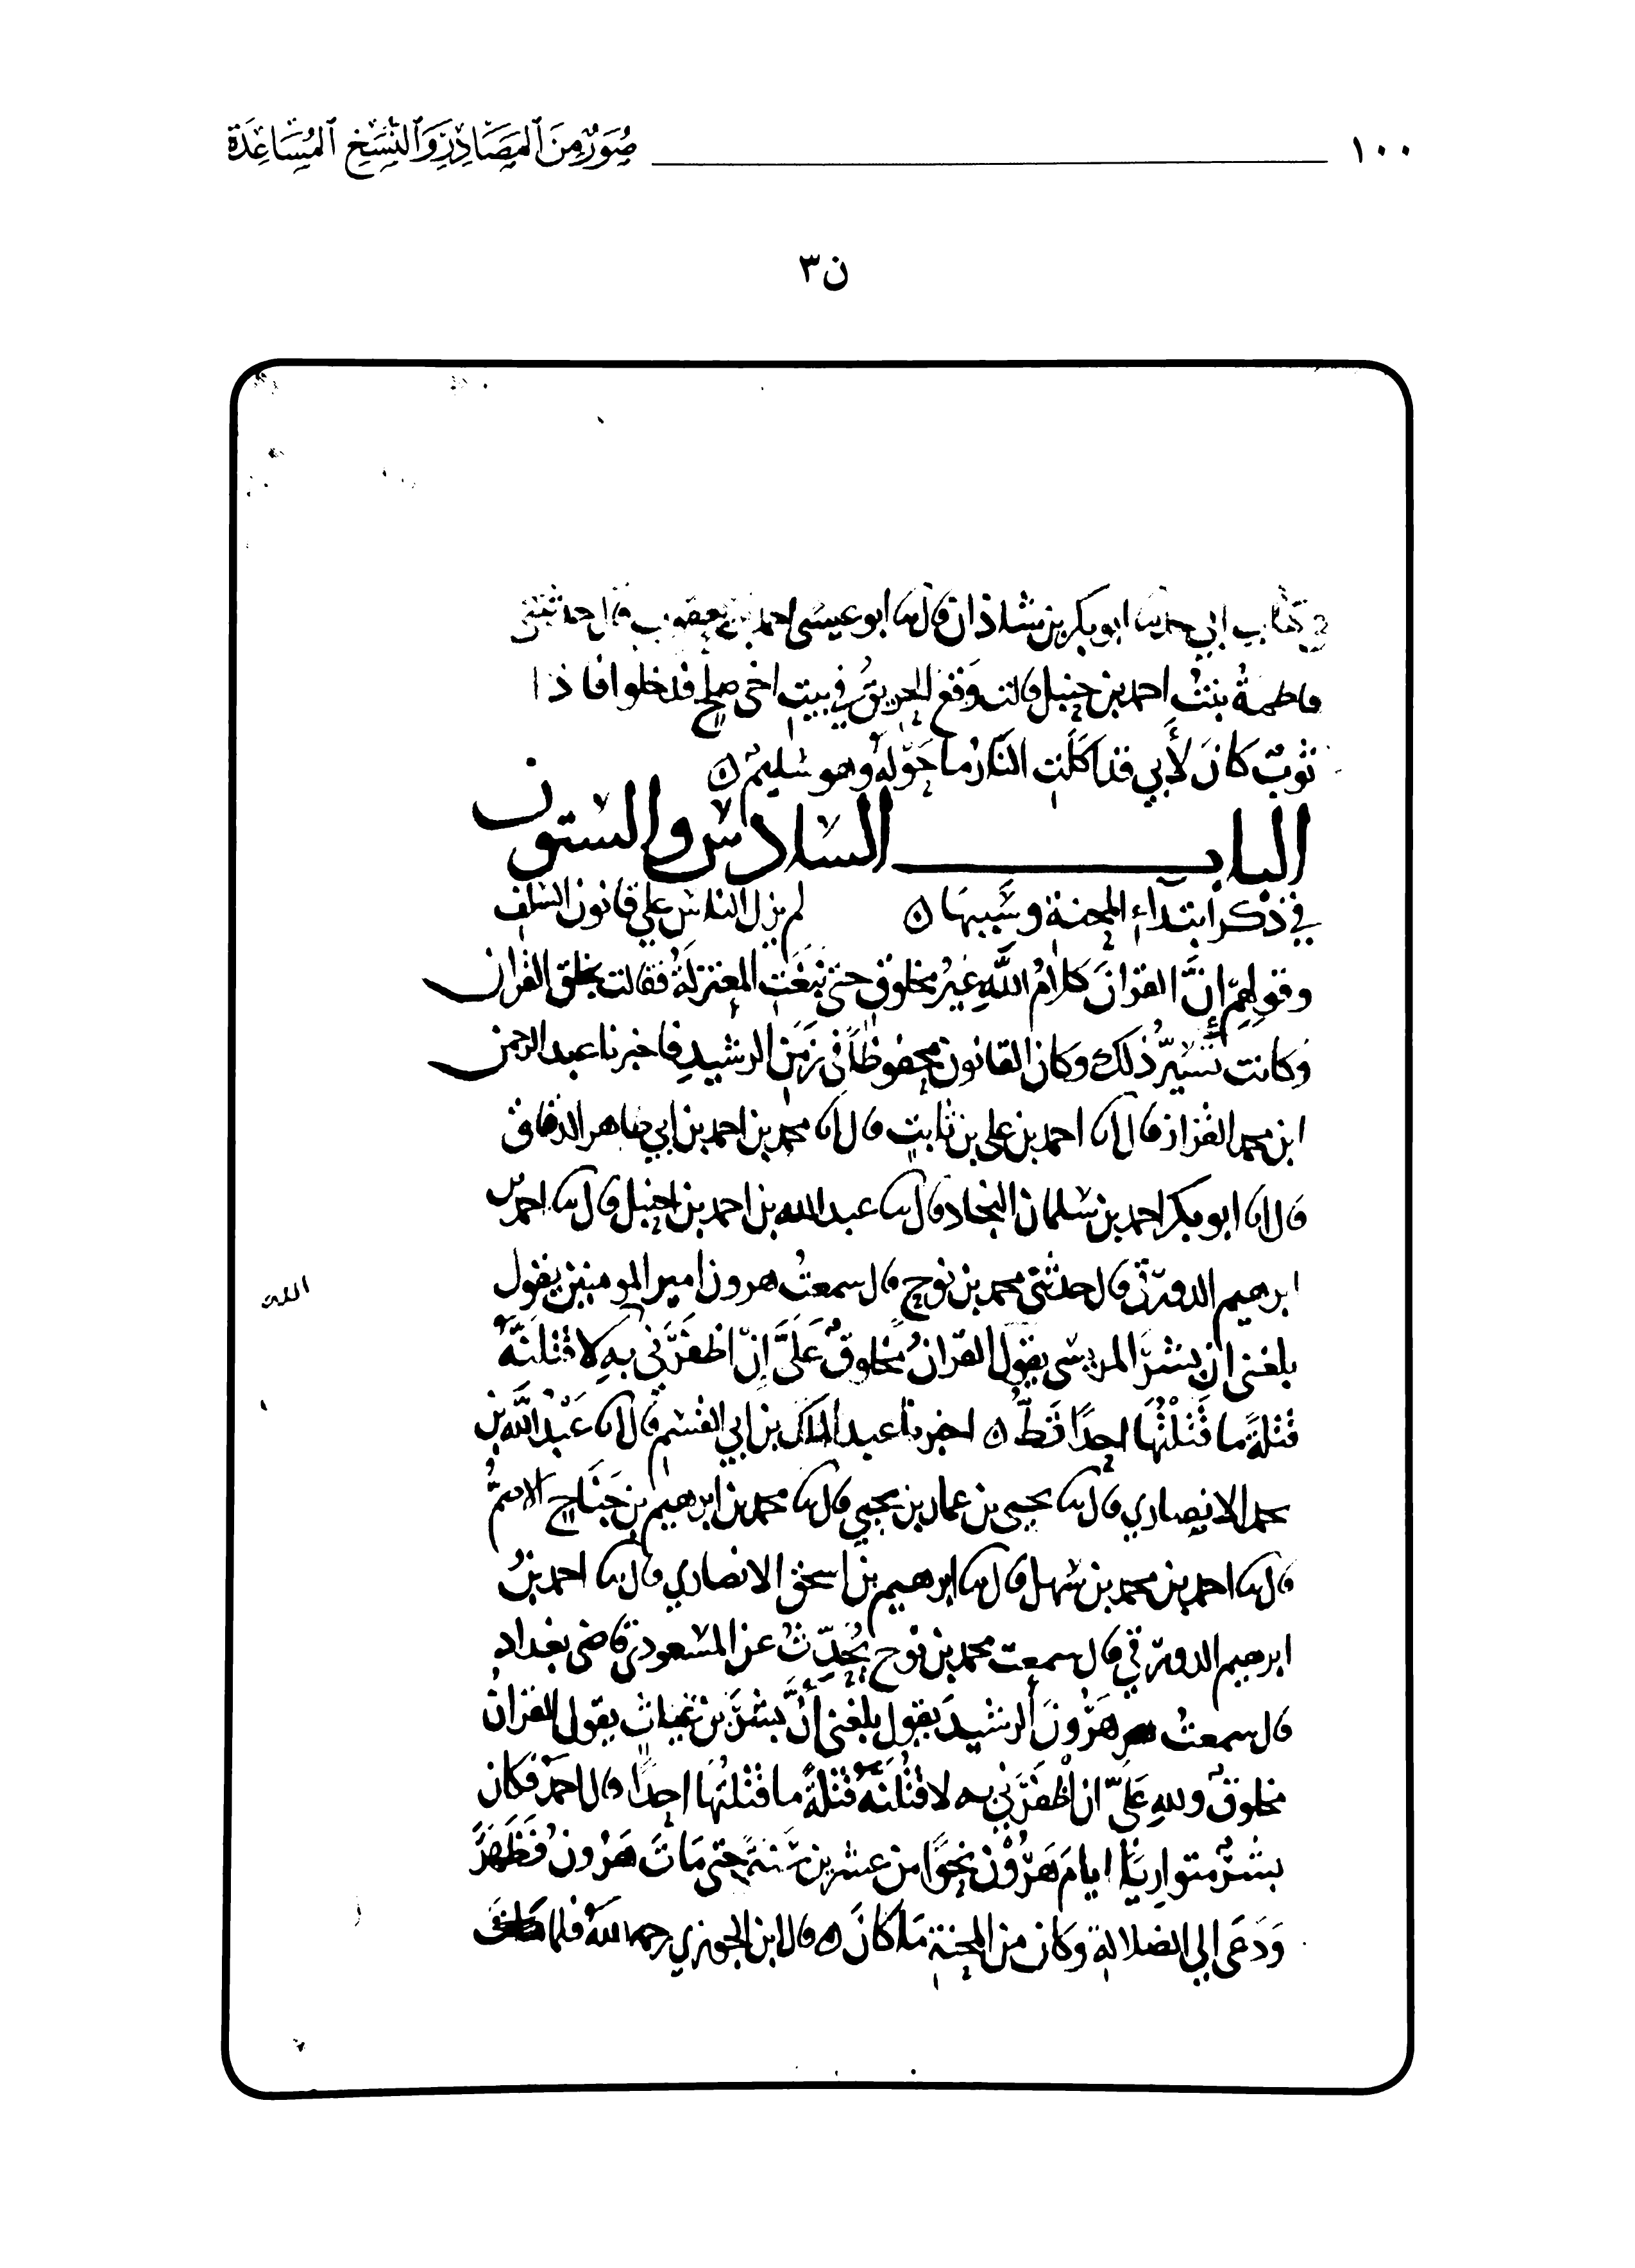 ١٠٠ صُوَرٌ مِنَ ٱلمَصَادِرِ وَٱلنُّسَخِ ٱلمُسَاعِدَة
ن٣
كتاب ابي حدثنا ابو بكر بن شاذان قال ثنا ابو عيسى احمد بن يعقوب قال حدثتني
فاطمةُ بنتُ احمد بن حنبل قالت وَقع الحريقُ في بيت اخي صلح فدخلوا فاذا
ثوبٌ كانَ لأَبي قد اكلَت النَّارُ ما حَوْلهُ وهو سَليمٌ ه
البابــــ السادس والستون
في ذكر ابتداءِ المحنة وسَببهَا ه لم يزل الناس علي قانون السَلف
وقولهِمْ إنَّ القرانَ كلامُ اللَّهِ غَيرُ مخلوقٍ حتى نَبَغَتِ المعتزلَةُ فقالت بخلق القران
وكانت تُسِرُّ ذلك وكان القانون محفوظاً في زمَن الرشيدِ فاخبرنا عبد الرحمن
ابن محمد القزاز قال انا احمد بن علي بن ثابت قال انا محمد بن احمد بن ابي طاهر الدقاق
قال انا ابو بكر احمد بن سَلمان النجاد قال ثنا عبد الله بن احمد بن حنبل قال ثنا احمد بن
ابرهيم الدورقي قال حدثني محمد بن نوح قال سمعتُ هرون امير المومنين يقول
بلغني ان بشرَّا المريسى يقول القرانُ مخلوقٌ عَلَيَّ إنْ اظفَرَني بهِ لاقتلنَّهُ
قتلةً ما قَتَلْتُهَا احدًا قَطُّ ه اخبرنا عبد الملك بن ابي القسم قال انا عَبْد اللَّه بن
محمد الانصاري قال ثنا يحيى بن عمار بن يحيي قال ثنا محمد بن ابرهيم بن جَنَاح الاصمُّ
قال ثنا احمد بن محمد بن سَهل قال ثنا ابرهيم بن اسحق الانصاري قال ثنا احمد بنُ
ابرهيم الدورقي قال سمعت محمد بن نوح يُحَدِّث عن المسعودي قاضي بغداد
قال سمعتُ هَرُونَ الرشيدَ يقول بلغني أَنَّ بشرَ بن غياث يقول القرانُ
مخلوقٌ وللهِ عَلَيّ ان اظفَرَني به لاقتُلَنَّهُ قتْلةً ما قتْلتُهَا احدًا قال احمدُ فكان
بشرٌ متواريًا ايامَ هَرُوْن نحوًا من عشرين سَنَةً حتى مَاتَ هَرُونُ فَظَهَرَ
وَدَعَى الي الضلالةِ وكان من المحنةِ مَا كانَ ه قال ابن الجوزي رحمه اللهُ فلما